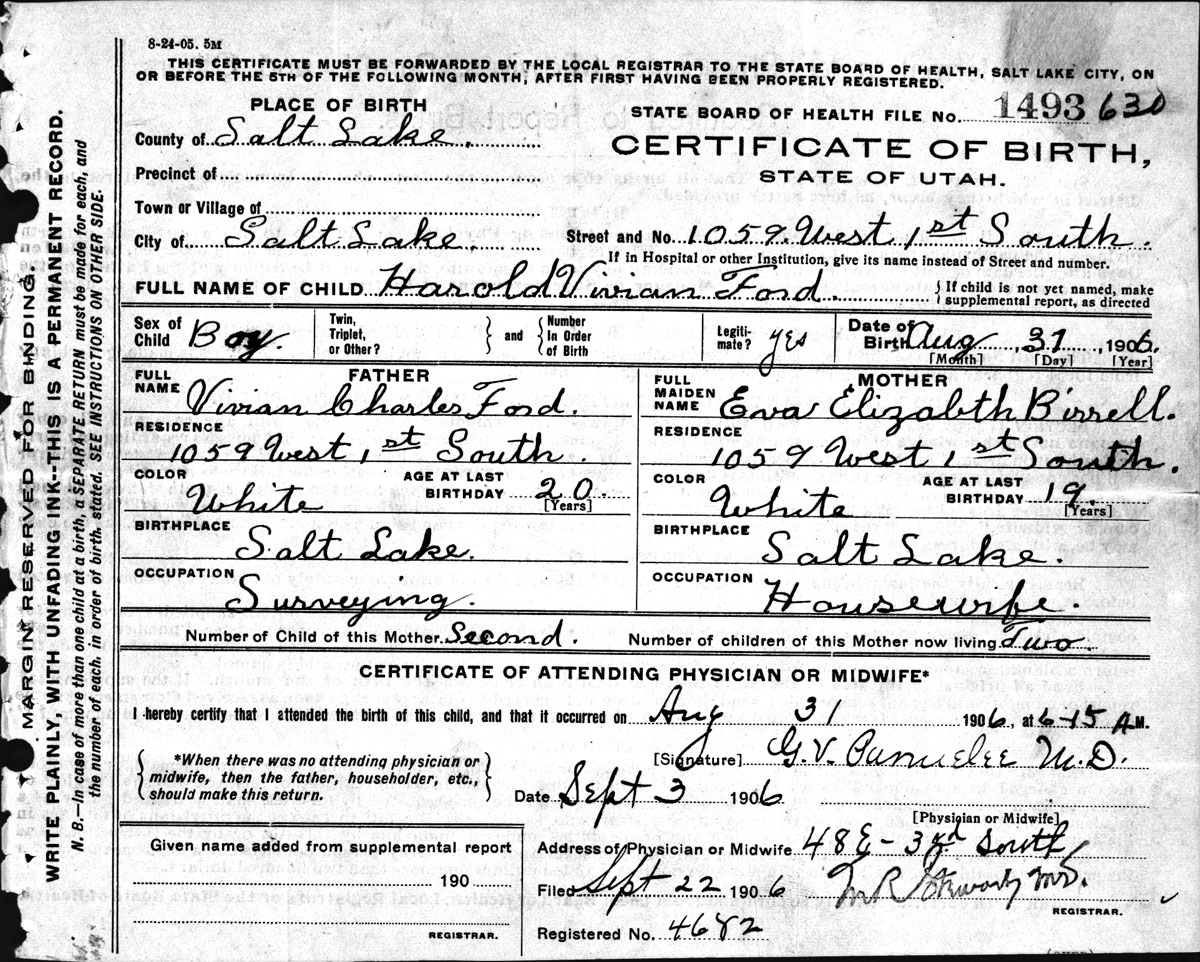 8-24-05. 5M
THIS CERTIFICATE MUST BE FORWARDED BY THE LOCAL REGISTRAR TO THE STATE BOARD OF HEALTH, SALT LAKE CITY, ON
OR BEFORE THE 5TH OF THE FOLLOWING MONTH, AFTER FIRST HAVING BEEN PROPERLY REGISTERED.
PLACE OF BIRTH
STATE BOARD OF HEALTH FILE No. 1493 630
County of Salt Lake.
CERTIFICATE OF BIRTH,
STATE OF UTAH.
Precinct of
Town or Village of
City of Salt Lake. Street and No. 1059 West 1st South.
If in Hospital or other Institution, give its name instead of Street and number.
FULL NAME OF CHILD Harold Vivian Ford. { If child is not yet named, make
supplemental report, as directed
Sex of Child Boy. Twin, Triplet, or Other? } and { Number In Order of Birth Legiti-mate? yes Date of Birth Aug 31, 1906.
[Month] [Day] [Year]
FATHER
FULL NAME Vivian Charles Ford.
RESIDENCE
1059 West 1st South.
COLOR White AGE AT LAST BIRTHDAY 20.
[Years]
BIRTHPLACE
Salt Lake.
OCCUPATION
Surveying.
MOTHER
FULL MAIDEN NAME Eva Elizabth Birrell.
RESIDENCE
1059 West 1st South.
COLOR White AGE AT LAST BIRTHDAY 19.
[Years]
BIRTHPLACE
Salt Lake.
OCCUPATION
Housewife.
Number of Child of this Mother Second. Number of children of this Mother now living Two.
CERTIFICATE OF ATTENDING PHYSICIAN OR MIDWIFE*
I hereby certify that I attended the birth of this child, and that it occurred on Aug 31 1906, at 6-15 A.M.
{ *When there was no attending physician or
midwife, then the father, householder, etc.,
should make this return. }
[Signature] G.V. M.D.
Date Sept 3 1906
[Physician or Midwife]
Address of Physician or Midwife 48 E - 3rd South
Given name added from supplemental report
190
REGISTRAR.
Filed Sept 22 1906 M.D.
REGISTRAR.
Registered No. 4682
MARGIN RESERVED FOR BINDING.
WRITE PLAINLY, WITH UNFADING INK--THIS IS A PERMANENT RECORD.
N. B.--In case of more than one child at a birth, a SEPARATE RETURN must be made for each, and
the number of each, in order of birth stated. SEE INSTRUCTIONS ON OTHER SIDE.